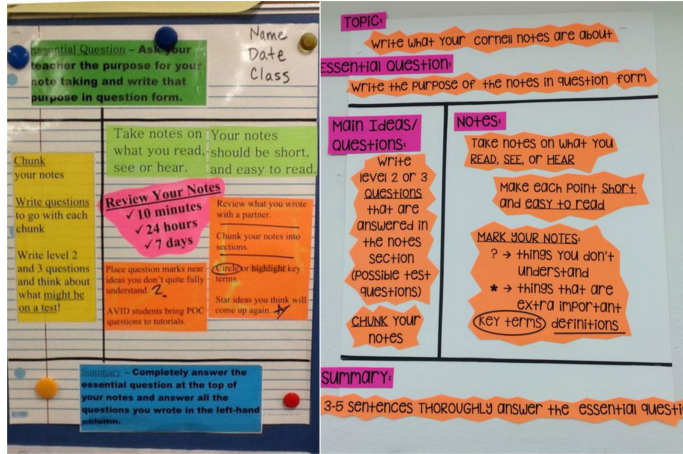 Name
Date
Class
Essential Question – Ask your
teacher the purpose for your
note taking and write that
purpose in question form.
Take notes on
what you read,
see or hear.
Your notes
should be short,
and easy to read.
Chunk
your notes
Write questions
to go with each
chunk
Write level 2
and 3 questions
and think about
what might be
on a test!
Review Your Notes
✓ 10 minutes
✓ 24 hours
✓ 7 days
Review what you wrote
with a partner.
Chunk your notes into
sections.
Circle or highlight key
terms.
Star ideas you think will
come up again.
Place question marks near
ideas you don't quite fully
understand. ?
AVID students bring POC
questions to tutorials.
Summary – Completely answer the
essential question at the top of
your notes and answer all the
questions you wrote in the left-hand
column.
Topic:
Write what your cornell notes are about
Essential Question:
Write the purpose of the notes in question form
Main Ideas/
Questions:
Write
level 2 or 3
QUESTIONS
that are
answered in
the notes
section
(possible test
questions)
CHUNK your
notes
Notes:
Take notes on what you
READ, SEE, or HEAR
Make each point short
and easy to read
MARK YOUR NOTES:
? → things you don't
understand
* → things that are
extra important
Key terms definitions
Summary:
3-5 sentences THOROUGHLY answer the essential questi